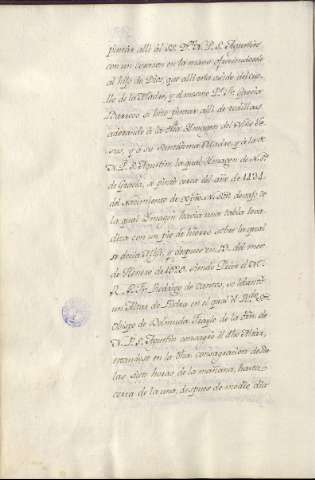 pintar alli al SS. Dr. N. P. S. Agustin,
con un corazon en la mano ofreciendole
al hijo de Dios, que alli está asido del cue-
llo de la Madre, y el mesmo P. Fr. Garcia
Barroso se hizo pintar alli de rodillas
adorando á la dha. Imagen del Niño Je-
sus, y á su Santissima Madre, y á la de
N. P. S. Agustin, la qual Imagen de N. S.
de Gracia, se pintó cerca del año de 1494.
del nacimiento de Xpto. N. Sr. debajo de
la qual Imagen havia una tabla leva-
diza con un pie de hierro sobre la qual
se decia Missa, y despues en 19. del mes
de Henero de 1520. siendo Prior el M.
R. P. Fr. Rodrigo de se levantó
un Altar de Piedra en el qual el
Obispo de Frayle de la Orden de
N. P. S. Agustin consagró el dho Altar,
tocandose en la dha. consagracion desde
las siete horas de la mañana, hasta
cerca de la una, despues de medio dia